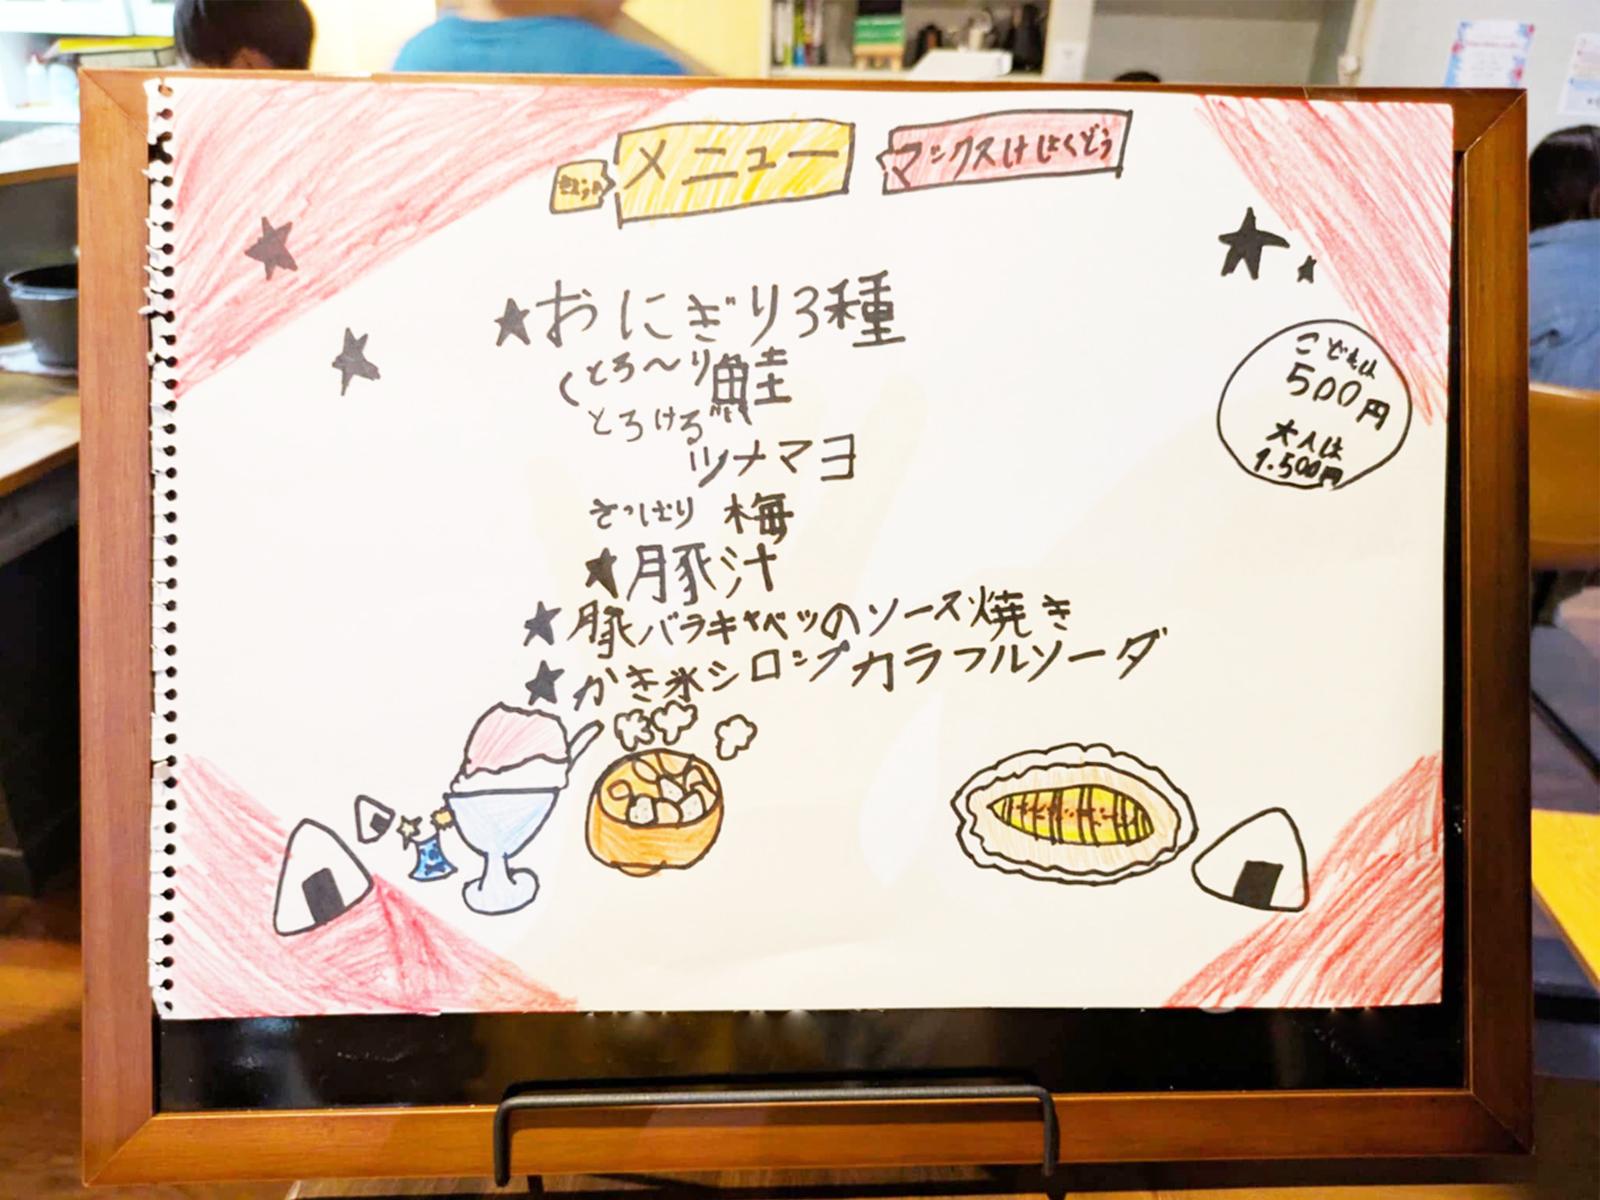 メニュー
マックスけしょくどう
★おにぎり3種
(とろ〜り鮭
とろける
ツナマヨ
さっぱり 梅
★豚汁
★豚バラキャベツのソース焼き
★かき氷シロップカラフルソーダ
こどもは
500円
大人は
1.500円